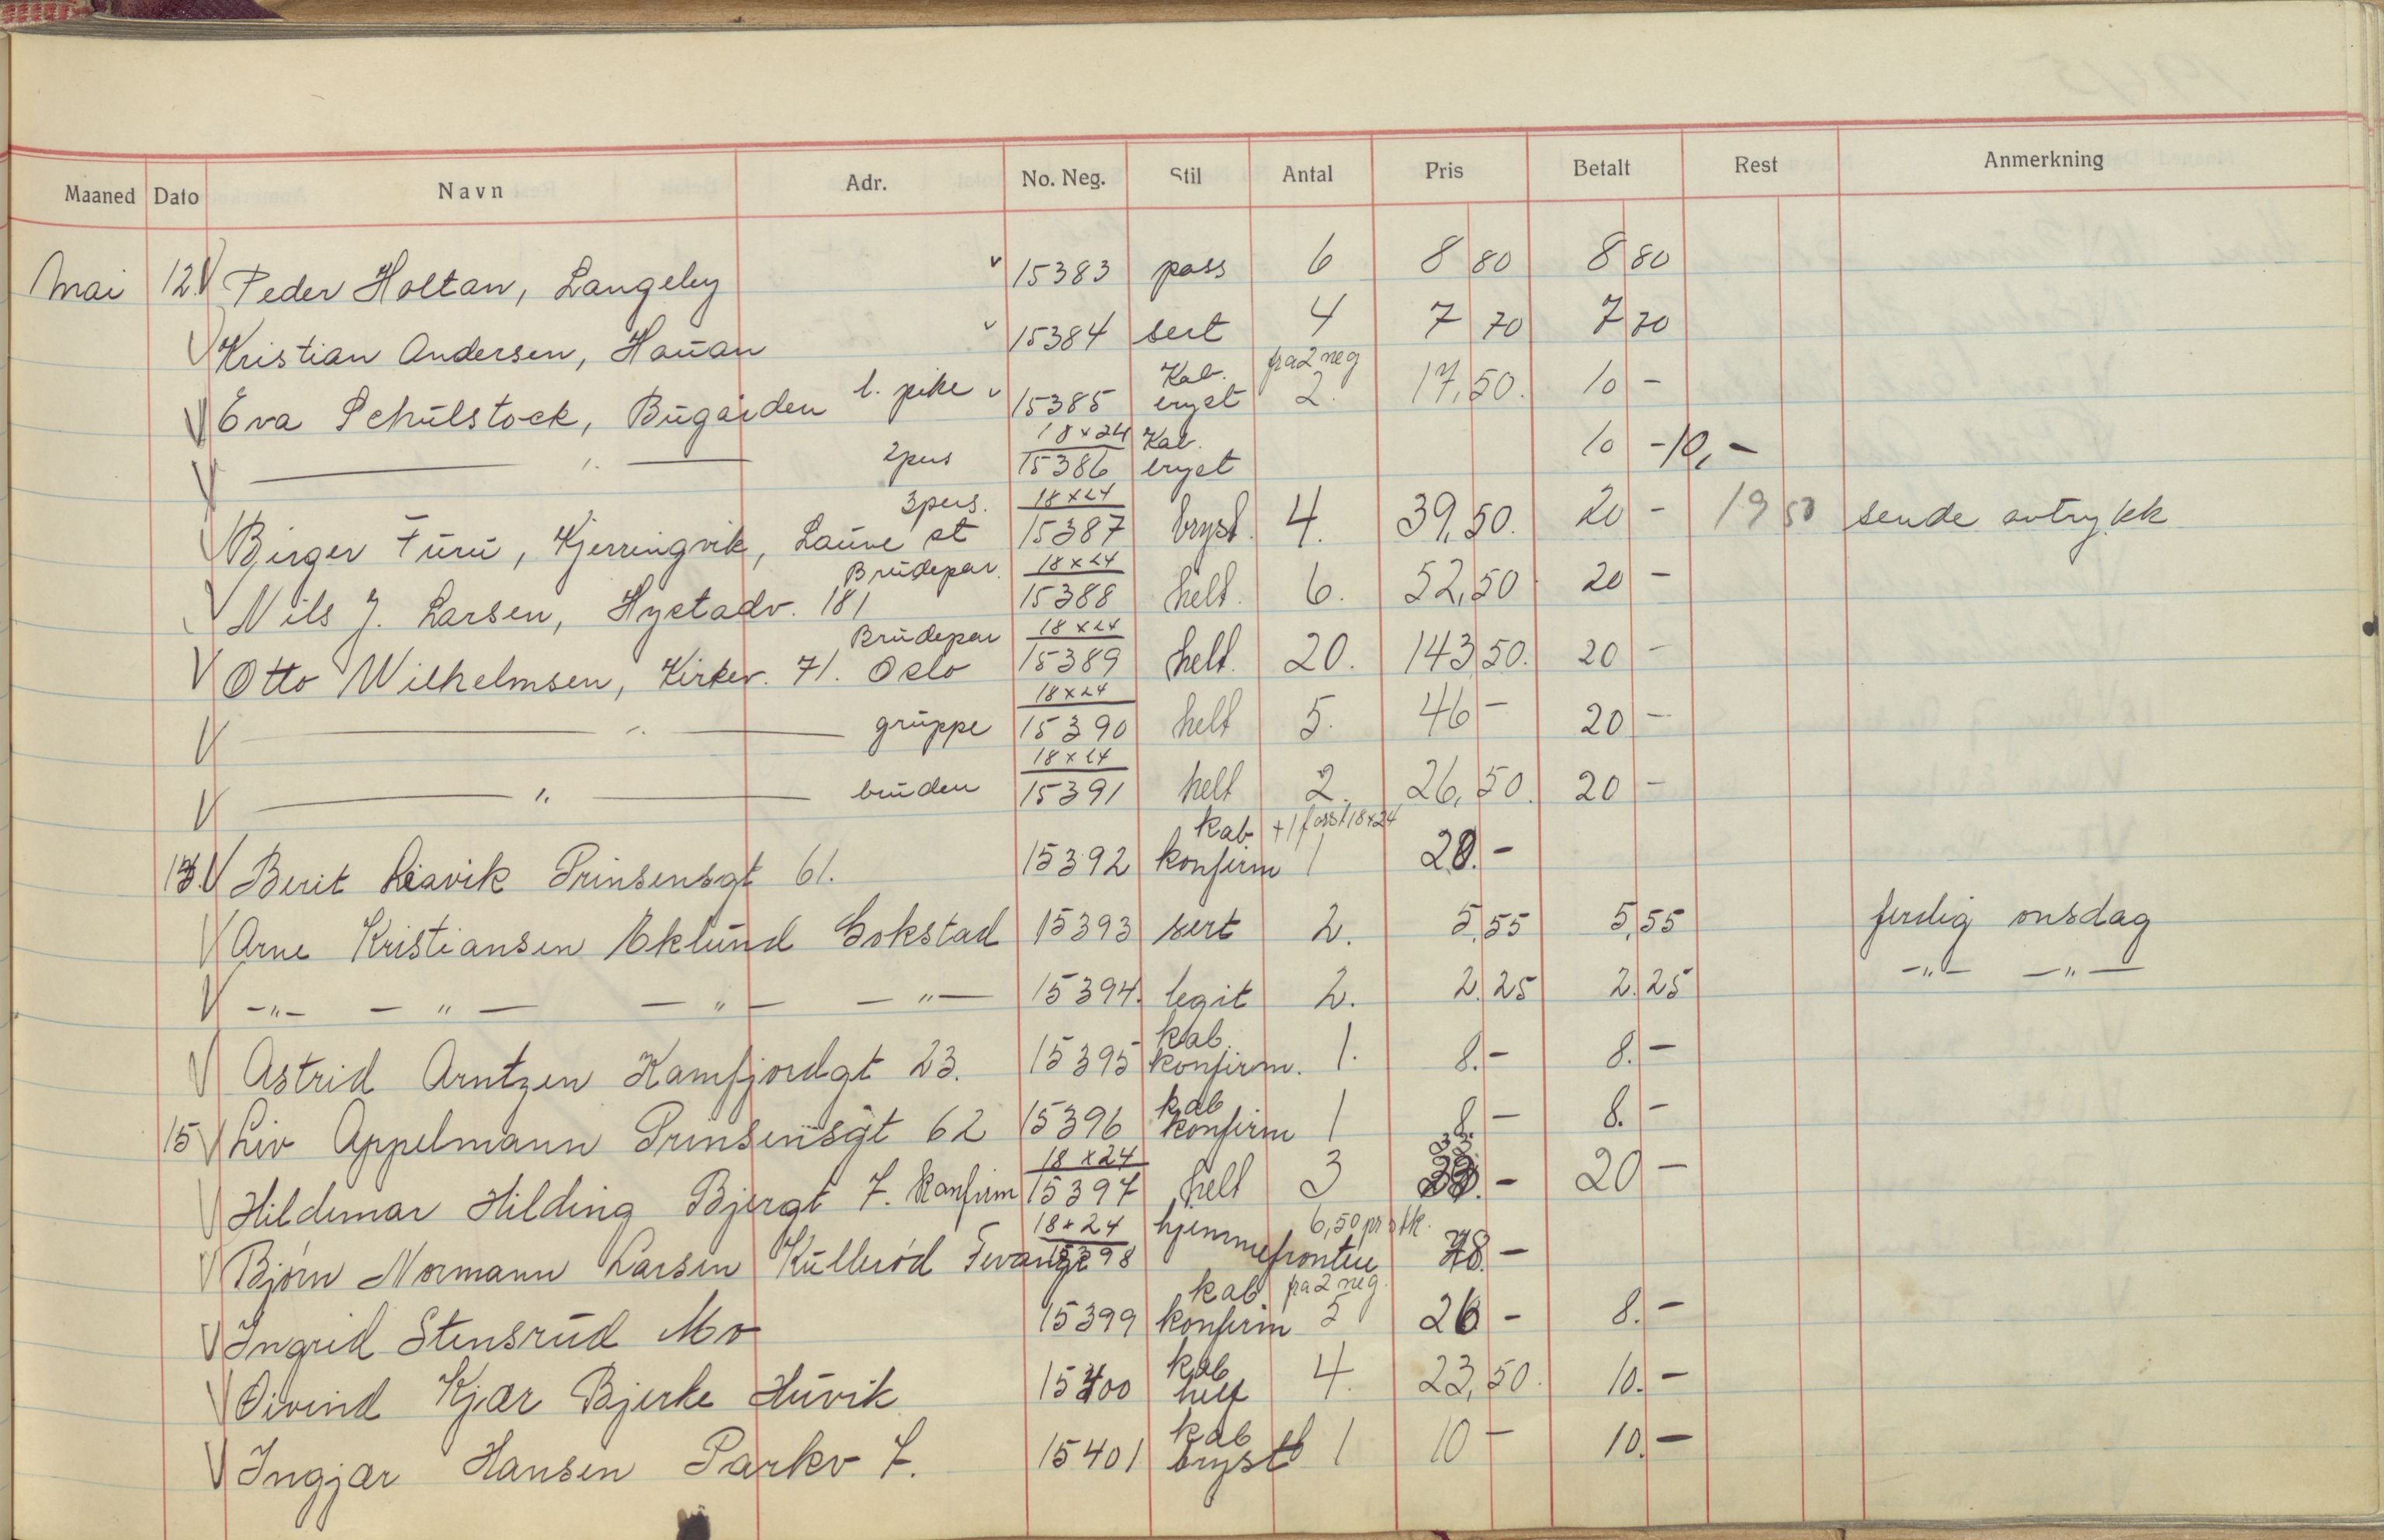 Maaned Dato Navn Adr. No. Neg. Stil Antal Pris Betalt Rest Anmerkning
Mai 12. V Peder Holtan, Langeby v 15383 pass 6 8 80 8 80
V Kristian Andersen, Hauan v 15384 sert 4 7 70 7 70
Kab. fra 2 neg
V Eva Schulstock, Bugården l. pike v 15385 bryst 2. 17,50. 10 -
18x24 Kab.
V — " — 2 pers 15386 bryst 10 - 10,-
3 pers. 18x24
V Birger Furu, Kjerringvik, Lauve st 15387 bryst. 4. 39,50. 20 - 19 50 sende avtrykk
Brudepar. 18x24
V Nils J. Larsen, Hystadv. 181 15388 helt. 6. 52,50 20 -
Brudepar 18x24
V Otto Wilhelmsen, Kirkev. 71. Oslo 15389 helt. 20. 143,50. 20 -
18x24
V — " — gruppe 15390 helt 5. 46 - 20 -
18x24
V — " — bruden 15391 helt 2. 26,50. 20 -
kab +1 18x24
13. V Berit Liavik Prinsensgt 61. 15392 konfirm 1 20.-
V Arne Kristiansen Eklund Gokstad 15393 sert 2. 5,55 5,55 ferdig onsdag
V -"- - " - - " - - " - 15394. legit 2. 2.25 2.25 -"- -"-
kab.
V Astrid Arntzen Kamfjordgt 23. 15395 konfirm. 1. 8.- 8.-
kab
15 V Liv Appelmann Prinsensgt 62 15396 konfirm 1 8.- 8.-
18x24 33
V Hildimar Hilding Bjergt 7. konfirm 15397 helt 3 20 -
18x24 hjemmefronten 6,50 pr stk.
V Bjørn Normann Larsen Kullerød Fevang 15398 78.-
kab fra 2 neg.
V Ingrid Stensrud Mo 15399 konfirm 5 26 - 8.-
kab
V Øivind Kjær Bjerke Huvik 15400 helt 4. 23,50. 10.-
kab
V Ingjar Hansen Parkv 7. 15401 bryst 1 10 - 10.-